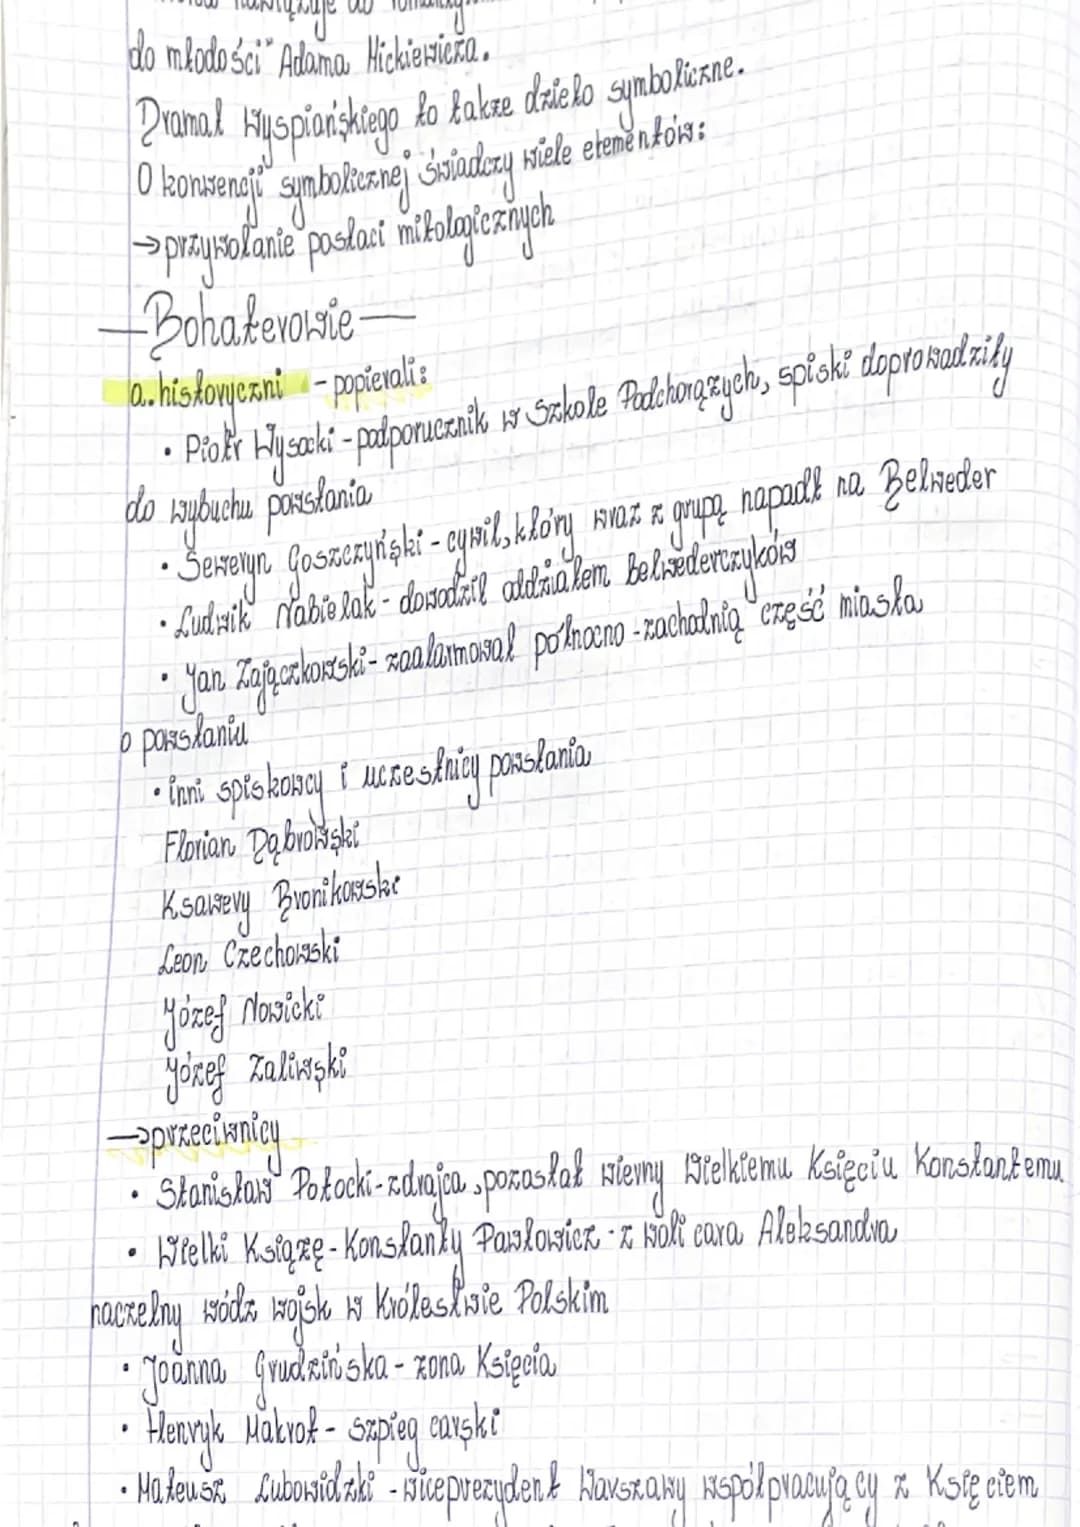 nawiązuje do
do młodości" Adama Mickiewicza.
Dramat Wyspiańskiego to także dzieło symboliczne.
O konwencji symbolicznej świadczy wiele elementów:
→ przywołanie postaci mitologicznych
— Bohaterowie —
a. historyczni - popierali:
• Piotr Wysocki - podporucznik w Szkole Podchorążych, spiski doprowadziły
do wybuchu powstania
• Seweryn Goszczyński - cywil, który wraz z grupą napadł na Belweder
• Ludwik Nabielak - dowodził oddziałem Belwederczyków
• Jan Zajączkowski - zaalarmował północno-zachodnią część miasta
o powstaniu
• inni spiskowcy i uczestnicy powstania
Florian Dąbrowski
Ksawery Bronikowski
Leon Czechowski
Józef Nowicki
Józef Zaliwski
→ przeciwnicy
• Stanisław Potocki - zdrajca, pozostał wierny Wielkiemu Księciu Konstantemu
• Wielki Książę - Konstanty Pawłowicz - z woli cara Aleksandra
naczelny wódz wojsk w Królestwie Polskim
• Joanna Grudzińska - żona Księcia
• Henryk Makrot - szpieg carski
• Mateusz Lubowidzki - wiceprezydent Warszawy współpracujący z Księciem